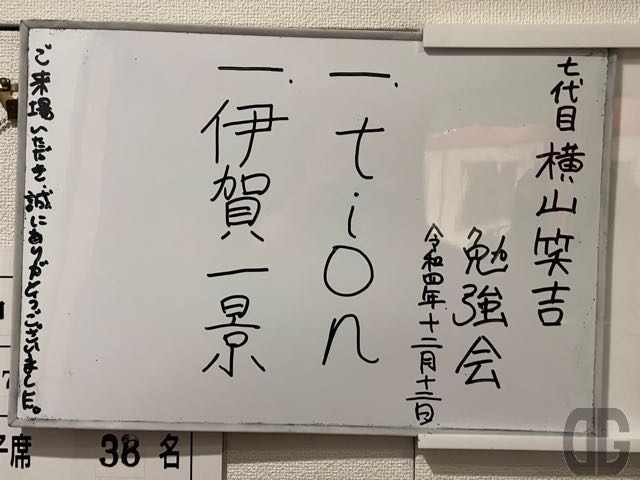 七代目 横山笑吉
勉強会
令和四年十二月十三日
一、tion
一、伊賀一景
ご来場いただき、誠にありがとうございました。
席 38 名
DG